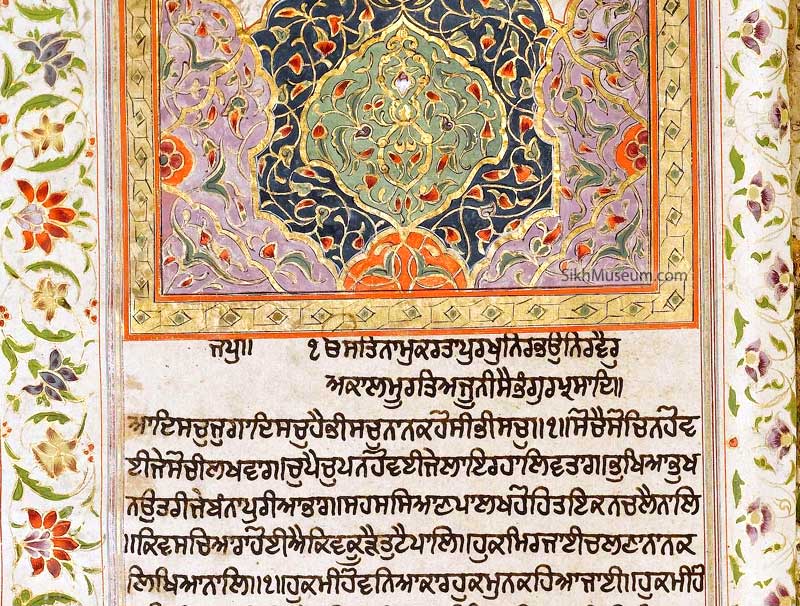 SikhMuseum.com
ਜਪੁ॥ ੧ੳਸਤਿਨਾਮੁਕਰਤਾਪੁਰਖੁਨਿਰਭਉਨਿਰਵੈਰੁ
ਅਕਾਲਮੂਰਤਿਅਜੂਨੀਸੈਭੰਗੁਰਪ੍ਰਸਾਦਿ॥
ਆਦਿਸਚੁਜੁਗਾਦਿਸਚੁਹੈਭੀਸਚੁਨਾਨਕਹੋਸੀਭੀਸਚੁ॥੧॥ਸੋਚੈਸੋਚਿਨਹੋਵ
ਈਜੇਸੋਚੀਲਖਵਾਰ॥ਚੁਪੈਚੁਪਨਹੋਵਈਜੇਲਾਇਰਹਾਲਿਵਤਾਰ॥ਭੁਖਿਆਭੁਖ
ਨਉਤਰੀਜੇਬੰਨਾਪੁਰੀਆਭਾਰ॥ਸਹਸਸਿਆਣਪਾਲਖਹੋਹਿਤਇਕਨਚਲੈਨਾਲਿ
॥ਕਿਵਸਚਿਆਰਾਹੋਈਐਕਿਵਕੂੜੈਤੁਟੈਪਾਲਿ॥ਹੁਕਮਿਰਜਾਈਚਲਣਾਨਾਨਕ
ਲਿਖਿਆਨਾਲਿ॥੧॥ਹੁਕਮੀਹੋਵਨਿਆਕਾਰਹੁਕਮੁਨਕਹਿਆਜਾਈ॥ਹੁਕਮੀਹੋ